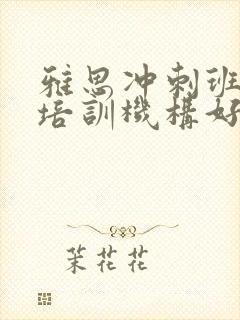 雅思冲刺班
培訓機構好
茉花花